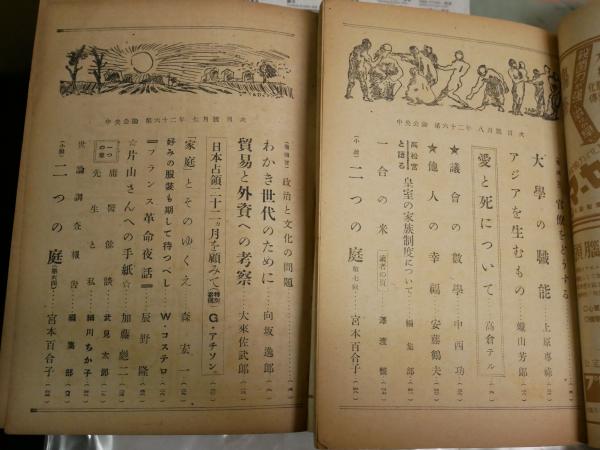 中央公論 第六十二年 八月號目次
大學の職能 上原專祿
アジアを生むもの 蠟山芳郎
愛と死について 高倉テル
★議會の數學 中西功
★他人の幸福 安藤鶴夫
高松宮と語る 皇室の家族制度について 編集部
一合の米 讀者の頁 澤渡恒
(小説) 二つの庭 (第七囘) 宮本百合子
中央公論 第六十二年 七月號目次
政治と文化の問題
わかき世代のために 向坂逸郎
貿易と外資への考察 大來佐武郎
日本占領二十二ヵ月を顧みて G・アチソン
「家庭」とそのゆくえ 森宏一
好みの服装も期して待つべし W・コステロ
『フランス革命夜話』 辰野隆
☆片山さんへの手紙☆ 加藤彪二
庸醫餘談 武見太郎
先生と私 細川ちか子
世論調査報告 編集部
(小説) 二つの庭 宮本百合子